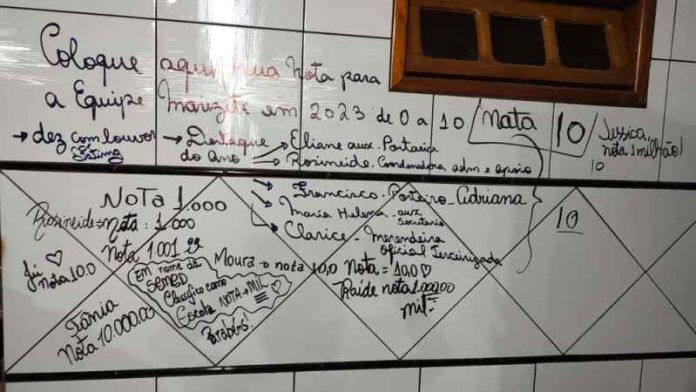 Coloque aqui sua Nota para
a Equipe Marizete em 2023 de 0 a 10
Nata
10
Jessica
nota 1 milhão!
10
→ dez com louvor
Fátima
→ Destaque do Ano
→ Eliane aux. Portaria
→ Rosineide. Coordenadora adm e apoio
→ Francisco. Porteiro - Adriana
→ Maria Helena - aux Secretaria
→ Clarice - Merendeira
Oficial Terceirizada
10
NOTA 1.000
Rosineide = Nota: 1.000
Nota 1.001
Jui
Nota 10.0
Em nome da
SEMED
Classifico como
Escola NOTA = MIL
Parabéns!
Moura - o nota 10,0
Nota = 10,0
Raide nota 1.000,00
mil
Tânia
Nota 10.000.00